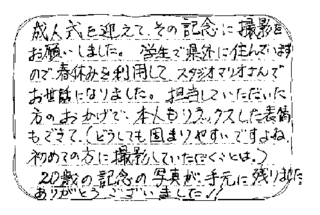 成人式を迎えて、その記念に撮影を
お願いしました。学生で県外に住んでいます
ので、春休みを利用して、スタジオマリオさんで
お世話になりました。担当していただいた
方のおかげで、本人もリラックスした表情
もできて、(どうしても固まりやすいですよね
初めての方に撮影していただくことは。)
20歳の記念の写真が、手元に残りました
ありがとうございました!!